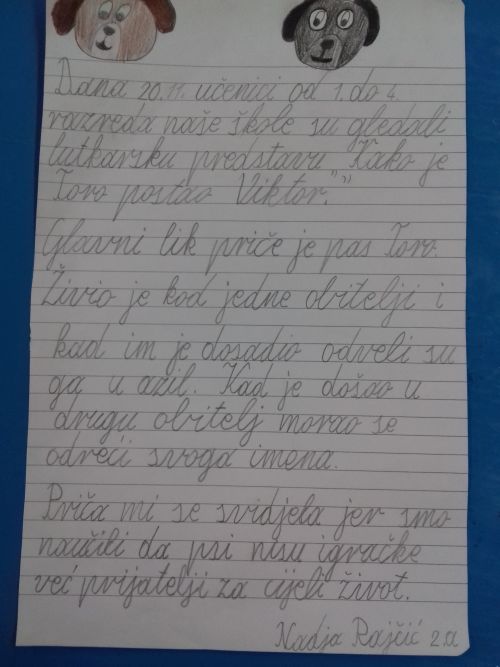 Dana 20.11. učenici od 1. do 4.
razreda naše škole su gledali
lutkarsku predstavu "Kako je
Toro postao Viktor."
Glavni lik priče je pas Toro.
Živio je kod jedne obitelji i
kad im je dosadio odveli su
ga u azil. Kad je došao u
drugu obitelj morao se
odreći svoga imena.
Priča mi se svidjela jer smo
naučili da psi nisu igračke
već prijatelji za cijeli život.
Nadja Rajčić 2.a